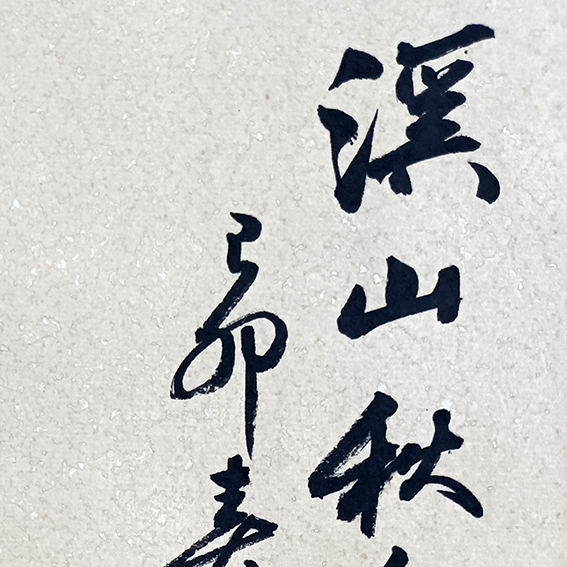 溪山秋
己卯春